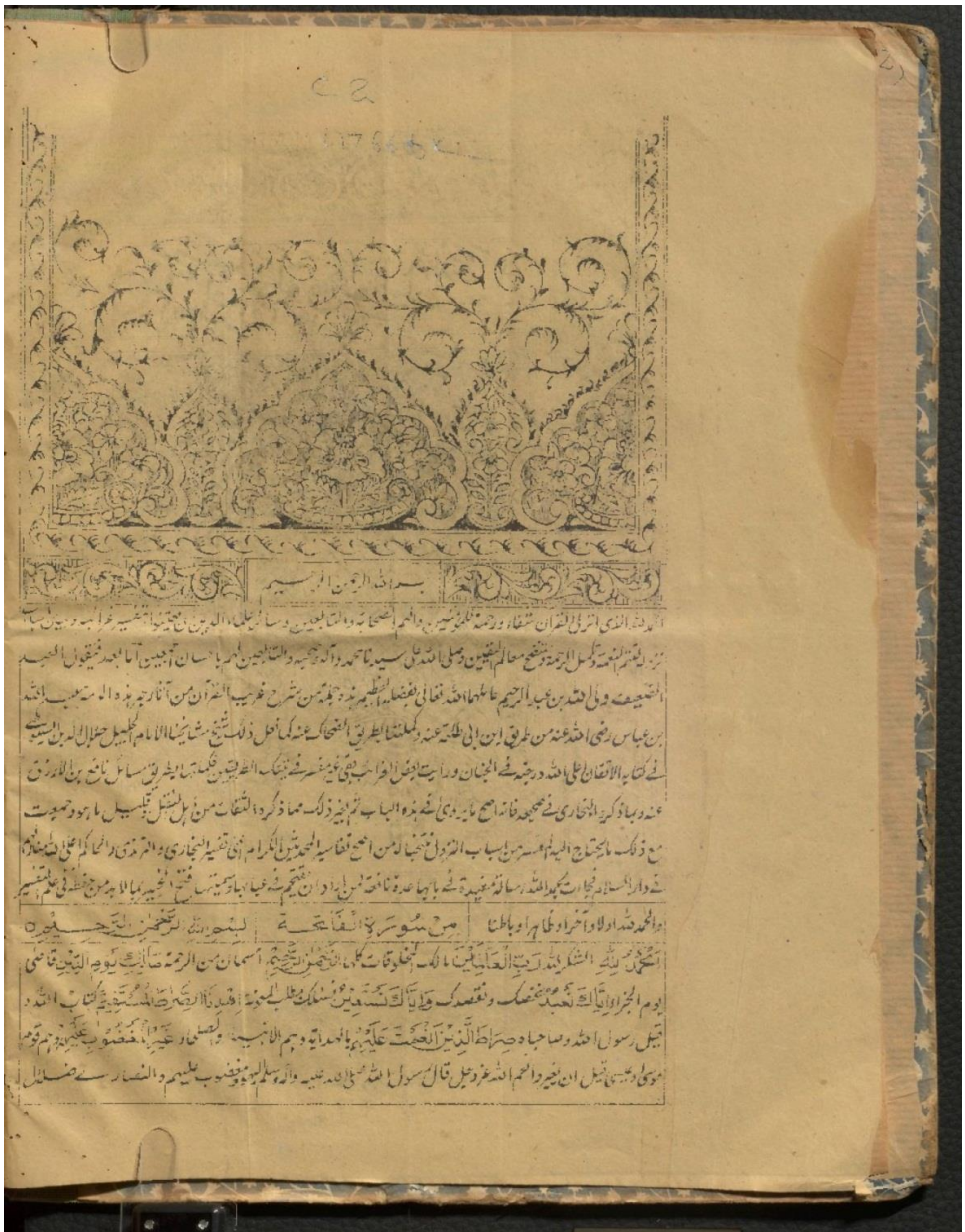 بسم الله الرحمن الرحيم
الحمد لله الذى انزل القران شفاء ورحمة للمؤمنين والهم الصحابة والتابعين وسائر علماء الدين تفسير غرائبه وبيان اسباب
نزوله ليتم النعمة وتكمل الرحمة ويتضح معالم اليقين وصلى الله على سيدنا محمد وآله وصحبه والتابعين لهم باحسان اجمعين اما بعد فيقول العبد
الضعيف ولى الله بن عبد الرحيم عاملهما الله تعالى بفضله العظيم هذه جملة من شرح غريب القرآن من آثار حبر هذه الامة عبد الله
بن عباس رضى الله عنه من طريق ابن ابى طلحة عنه وكملتها بطريق الضحاك عنه كما فعل ذلك شيخ مشايخنا الامام الجليل جلال الدين السيوطى
فى كتابه الاتقان اعلى الله درجته فى الجنان ورأيت بعض الغرائب بقى غير مفسر فى تينك الطريقين فكملتها بطريق مسائل نافع بن الازرق
عنه وبما ذكره البخارى فى صحيحه فانه اصح ما يروى فى هذه الباب ثم بغير ذلك مما ذكره الثقات من اهل النقل وقليل ما هو وجمعت
مع ذلك ما يحتاج اليه المفسر من اسباب النزول منتخبا له من اصح تفاسير المحدثين الكرام اعنى تفسير البخارى والترمذى والحاكم اعلى الله منازلهم
فى دار السلام فجاءت بحمد الله رسالة مفيدة فى بابها عدة نافعة لمن اراد ان يقتحم فى عبابها وسميتها فتح الخبير بما لا بد من حفظه فى علم التفسير
والحمد لله اولا وآخرا وظاهرا وباطنا من سورة الفاتحة بسم الله الرحمن الرحيم
الحمد لله الشكر لله رب العالمين مالك المخلوقات كلها الرحمن الرحيم اسمان من الرحمة مالك يوم الدين قاضى
يوم الجزاء اياك نعبد نخصك ونقصدك واياك نستعين منك نطلب المعونة اهدنا الصراط المستقيم كتاب الله و
قيل رسول الله وصاحباه صراط الذين انعمت عليهم بالهداية وهم الانبياء والصلحاء غير المغضوب عليهم هم قوم
موسى وعيسى قبل ان يغيروا نعم الله عز وجل قال رسول الله صلى الله عليه وآله وسلم اليهود مغضوب عليهم والنصارى ضلال